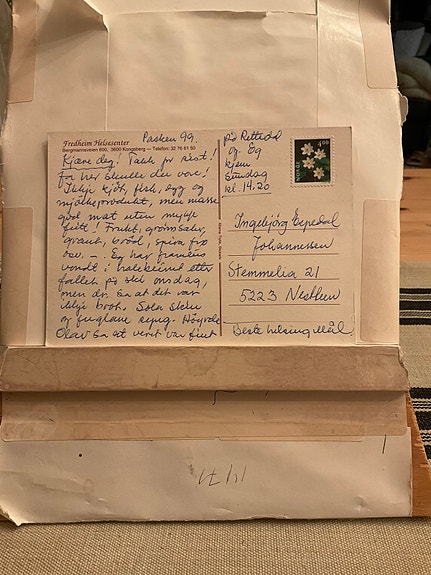 Påsken 99.
Fredheim Helsesenter
Bergmannsveien 600, 3600 Kongsberg — Telefon: 32 76 81 50
Kjære deg! Takk for sist!
Før her skulle du vore!
Ikkje kjøt, fisk, egg og
mjølkeprodukt, men masse
god mat uten mykje
fett! Frukt, grønsaker,
graut, brød, spira frø
osv. —. Eg har framleis
vondt i halebeinet etter
fallet på ski onsdag,
men dr. sa at det var
ikkje brot. Sola skin
og fuglane syng.
Olav sa at veret var fint
på
og. Eg
kjem
Sundag
kl. 14.20
NORGE
4.00
Ingebjørg Espedal
Johannessen
Stemmelia 21
5223 Nesttun
Beste helsing Mål.